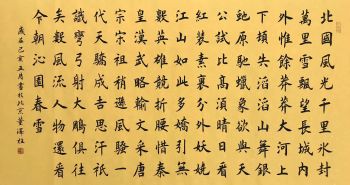 北國風光千里冰封
萬里雪飄望長城内
外惟餘莽莽大河上
下頓失滔滔山舞銀
蛇原馳蠟象欲與天
公試比高須晴日看
紅裝素裹分外妖嬈
江山如此多嬌引無
數英雄競折腰惜秦
皇漢武略輸文采唐
宗宋祖稍遜風騷一
代天驕成吉思汗衹
識彎弓射大雕俱往
矣數風流人物還看
今朝沁園春雪
歲在己亥五月書於北京